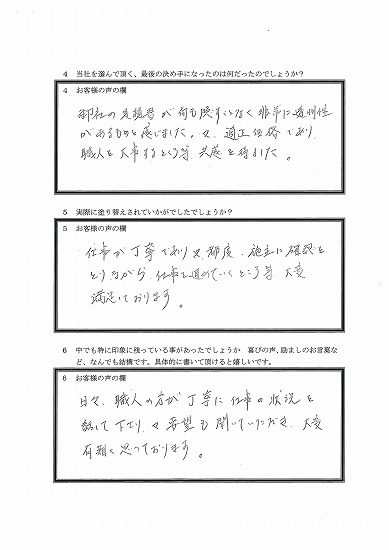 4 当社を選んで頂く、最後の決め手になったのは何だったのでしょうか?
4 お客様の声の欄
御社の見積書が何も隠すことなく非常に透明性
があるものと感じました。又、適正価格であり
職人を大事するところ等 共感を得ました。
5 実際に塗り替えされていかがでしたでしょうか?
5 お客様の声の欄
仕事が丁寧であり又都度、施主に確認を
とりながら 仕事を進めていくところ等 大変
満足しております。
6 中でも特に印象に残っている事があったでしょうか 喜びの声、励ましのお言葉な
ど、なんでも結構です。具体的に書いて頂けると嬉しいです。
6 お客様の声の欄
日々、職人の方が丁寧に仕事の状況を
話して下さり、又要望も聞いていただき、大変
有難く思っております。